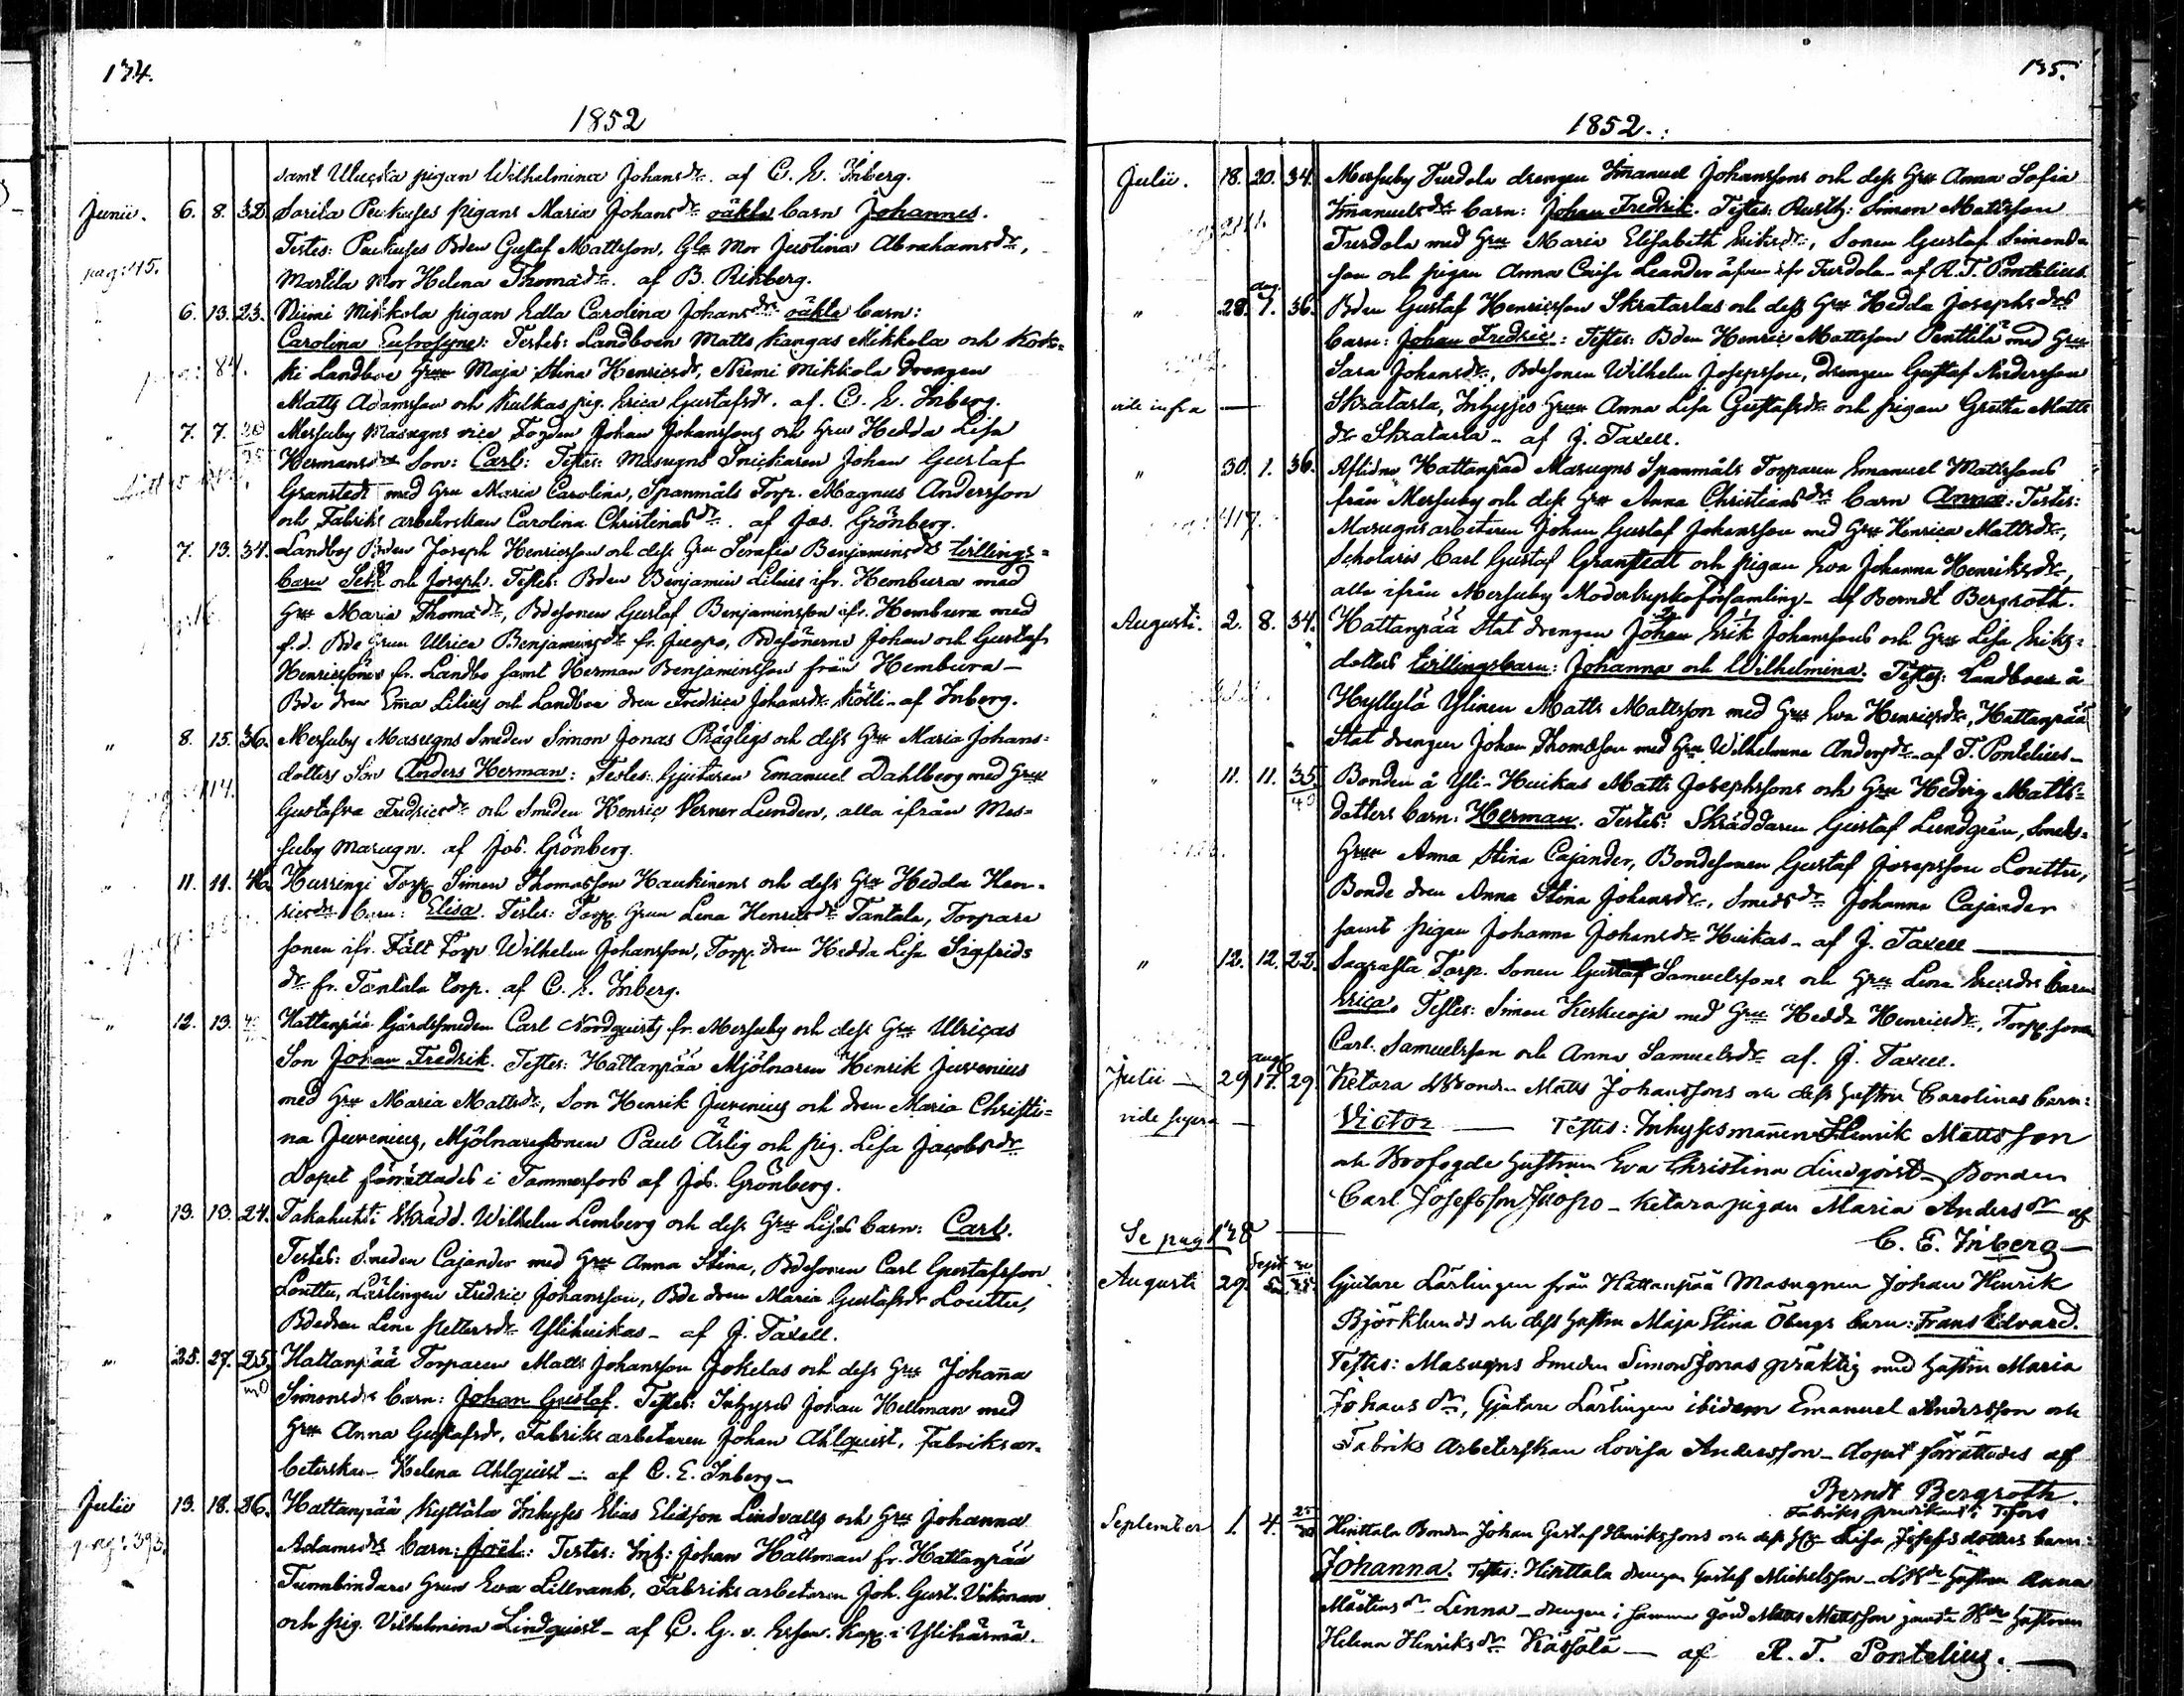 134.
1852
samt Ulucka pigan Wilhelmina Johansdr. af C. E. Inberg.
Junii. 6. 8. 32. Sarila Peukuses pigans Maria Johansdr oäkta barn Johannes.
Testes: Peukuses Bden Gustaf Mattsson, Gla Mor Justina Abrahamsdr,
pag: 115. Martila Mor Helena Thomædr. af B. Rikberg.
" 6. 13. 23. Niemi Mikkola pigan Edla Carolina Johansdrs oäkta barn:
Carolina Eufrosyne: Testes: Landboen Matts Kangas Mikkola och Kos-
84. ki Landboe Grun Maja Stina Henricsdr, Niemi Mikkola Drengen
Matts Adamsson och Kulkas pig. Erica Gustafsdr. af. C. E. Inberg.
" 7. 7. Messuby Masugns vice Fogden Johan Johanssons och Gru Hedda Lisa
Hermansdrs Son: Carl: Testes: Masugns Snickaren Johan Gustaf
Granstedt med Gru Maria Carolina, Spanmåls Torp. Magnus Andersson
och Fabriks arbeterskan Carolina Christinasdr. af Jos. Grönberg.
" 7. 13. 34. Landbos Bden Joseph Henricsson och dess Gru Serafia Benjaminsdrs tvillings-
barn Seth och Joseph. Testes: Bden Benjamin Lilius ifr. Hembura med
Gru Maria Thomædr, Bdesonen Gustaf Benjaminsson ifr. Hembura med
f.d. Bde Grun Ulrica Benjaminsdr fr. Juopo, Bdesönerna Johan och Gustaf
Henricssöner fr. Landbo samt Herman Benjaminsson från Hembura –
Bde dren Emma Lilius och Landboe dren Fredrica Johansdr Kölli – af Inberg.
" 8. 15. 36. Messuby Masugns Smeden Simon Jonas Prägligs och dess Gru Maria Johans-
dotters Son Anders Herman: Testes: Gjutaren Emanuel Dahlberg med Gru
114. Gustafva Fredricsdr och Smeden Henric Verner Lunden, alla ifrån Mes-
suby masugn. af Jos. Grönberg.
" 11. 11. 46. Hurringi Torp. Simon Thomasson Haukinens och dess Gru Hedda Hen-
ricsdrs barn: Elisa. Testes: Torp. Grun Lena Henricsdr Tantala, Torpare
sonen ifr. Fält Torp Wilhelm Johansson, Torp. dren Hedda Lisa Sigfrids
dr fr. Tantala torp. af C. E. Inberg.
" 12. 13. Hattanpää Gårdssmeden Carl Nordquists fr. Messuby och dess Gru Ulricas
Son Johan Fredrik. Testes: Hattanpää Mjölnaren Henrik Juvenius
med Gru Maria Mattsdr, Son Henrik Juvenius och dren Maria Christi-
na Juvenius, Mjölnaresonen Paul Ärlig och pig. Lisa Jacobsdr
Dopet förrättades i Tammerfors af Jos. Grönberg.
" 13. 13. 24. Takahuhti Skrädd. Wilhelm Lemberg och dess Gru Lisas barn: Carl.
Testes: Smeden Cajander med Gru Anna Stina, Bdesonen Carl Gustafsson
Louttu, Lärlingen Fredric Johansson, Bde dren Maria Gustafsdr Louttu,
Bdedren Lena Pettersdr Ylihuikas – af J. Taxell.
" 25. 27. 25. Hattanpää Torparen Matts Johansson Jokelas och dess Gru Johanna
Simonsdrs barn: Johan Gustaf. Testes: Inhyses Johan Hellman med
Gru Anna Gustafsdr, Fabriks arbetaren Johan Ahlquist, Fabriksar-
beterskan Helena Ahlquist – af C. E. Inberg –
Julii 13. 18. 36. Hattanpää Kyttäla Inhyses Elias Eliasson Lindvalls och Gru Johanna
pag: 393. Adamsdrs barn: Joël: Testes: Inh: Johan Hallman fr. Hattanpää
Tunnbindare Grun Eva Lillvank, Fabriksarbetaren Joh. Gust. Vikman
och pig. Vilhelmina Lindquist – af C. G. v. Essen. Kap. i Ylihärmä.
135.
1852.
Julii. 18. 20. 34. Messuby Turdola drengen Immanuel Johanssons och dess Gru Anna Sofia
Immanuelsdrs barn: Johan Fredrik. Testes: Rusth: Simon Mattsson
Turdola med Gru Maria Elisabeth Eriksdr, Sonen Gustaf Simons-
son och pigan Anna Caisa Leander äfven ifr Turdola – af R. T. Pontelius.
" 28. aug. 1. 36. Bden Gustaf Henricsson Skratarlas och dess Gru Hedda Josephsdrs
barn: Johan Fredric: Testes: Bden Henric Mattsson Penttilä med Gru
Sara Johansdr, Bdesonen Wilhelm Josepsson, Drengen Gustaf Andersson
vide infra — Skratarla, Inhyses Grun Anna Lisa Gustafsdr och pigan Gretha Matts
dr Skratarla – af J. Taxell.
" 30. 1. 36. Aflidne Hattanpää Masugns Spanmåls Torparen Emanuel Mattssons
från Messuby och dess Gru Anna Christiansdrs barn Anna: Testes:
417. Masugnsarbetaren Johan Gustaf Johansson med Gru Henrica Mattsdr,
Scholaris Carl Gustaf Granstedt och pigan Eva Johanna Henriksdr,
alla ifrån Messuby Moderkyrkoförsamling – af Berndt Bergroth.
Augusti. 2. 8. 34. Hattanpää Stat drengen Johan Erik Johanssons och Gru Lisa Eriks-
dotters tvillingsbarn: Johanna och Wilhelmina. Testes: Landboen å
Hyllylä Ylinen Matts Mattsson med Gru Eva Henricsdr, Hattanpää
Stat drengen Johan Thomasson med Gru Wilhelmina Andersdr – af T. Pontelius –
" 11. 11. 35. Bonden å Yli-Huikas Matts Josephssons och Gru Hedvig Matts-
dotters barn: Herman. Testes: Skräddaren Gustaf Lundgren, Smeds-
Grun Anna Stina Cajander, Bondesonen Gustaf Josepsson Louttu,
Bonde dren Anna Stina Johansdr, Smedsdr Johanna Cajander
samt pigan Johanna Johansdr Huikas – af J. Taxell —
" 12. 12. 22. Torp. Sonen Gustaf Samuelssons och Gru Lena Ericsdrs barn
Erica. Testes: Simon Keskuoja med Gru Hedda Henricsdr, Torp. sonen
Carl Samuelsson och Anna Samuelsdr af. J. Taxell.
Julii — 29 aug 17. 29. Ketara Bonden Matts Johanssons och dess hustru Carolinas barn:
vide supra — Victor — Testes: Inhysesmannen Henrik Mattsson
och Krofogde hustrun Eva Christina Lindqvist – Bonden
Carl Josefsson Juopo – Ketara pigan Maria Andersdr af
Se pag 148 — C. E. Inberg —
Augusti 29. Sept 5. Gjutare Lärlingen från Hattanpää Masugnen Johan Henrik
Björklunds och dess hustru Maja Stina Öbergs barn: Frans Edvard.
Testes: Masugns Smeden Simon Jonas präktig med hustru Maria
Johans dr, Gjutare Lärlingen ibidem Emanuel Andersson och
Fabriks Arbeterskan Lovisa Andersson – dopet förrättades af
Berndt Bergroth.
Fabriks predikant i Tfors
September 1. 4. Hinttala Bonden Johan Gustaf Henrikssons och dess Hu Lisa Josefsdotters barn:
Johanna. Testes: Hinttala drengen Gustaf Mickelsson – hustrun Anna
Mårtensdr Lenna – drengen i samma gård Matts Mattsson hustrun
Helena Henriksdr Kässälä — af R. T. Pontelius. —